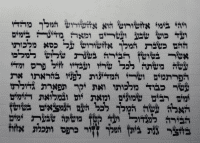 ויהי בימי אחשורוש הוא אחשורוש המלך מהדו
ועד כוש שבע ועשרים ומאה מדינה בימים
ההם כשבת המלך אחשורוש על כסא מלכותו
אשר בשושן הבירה בשנת שלוש למלכו
עשה משתה לכל שריו ועבדיו חיל פרס ומדי
הפרתמים ושרי המדינות לפניו בהראתו את
עשר כבוד מלכותו ואת יקר תפארת גדולתו
ימים רבים שמונים ומאת יום ובמלואת הימים
האלה עשה המלך לכל העם הנמצאים בשושן
הבירה למגדול ועד קטן משתה שבעת ימים
בחצר גנת ביתן המלך חור כרפס ותכלת אחוז